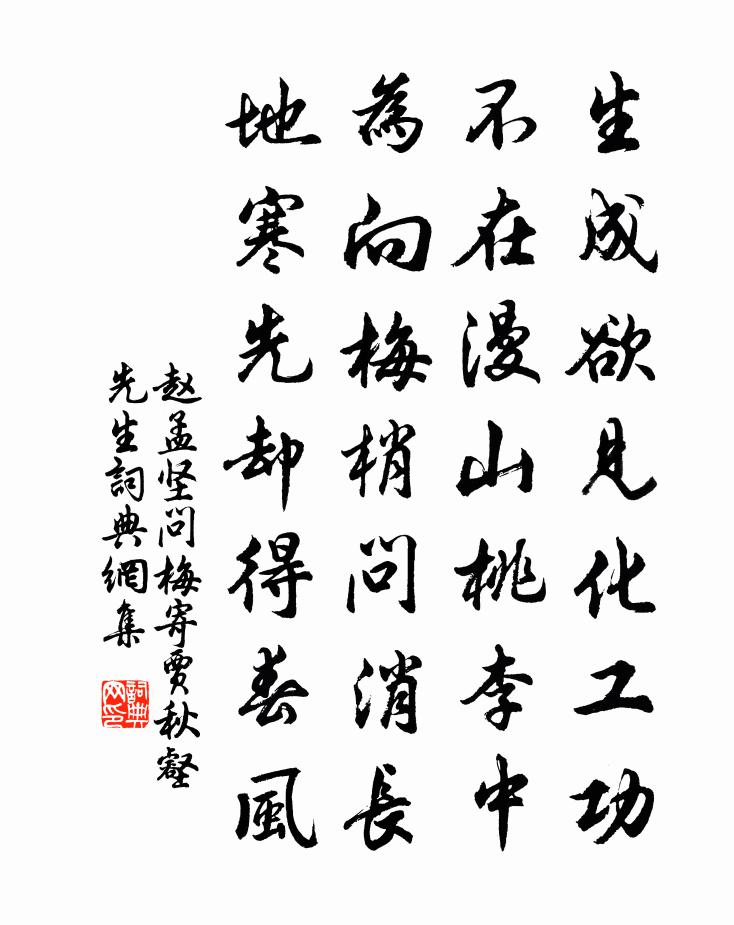 生成欲見化工功
不在漫山桃李中
為向梅梢問消長
地寒先却得春風
赵孟坚问梅寄賈秋壑
先生詞典網集
詞典
网印